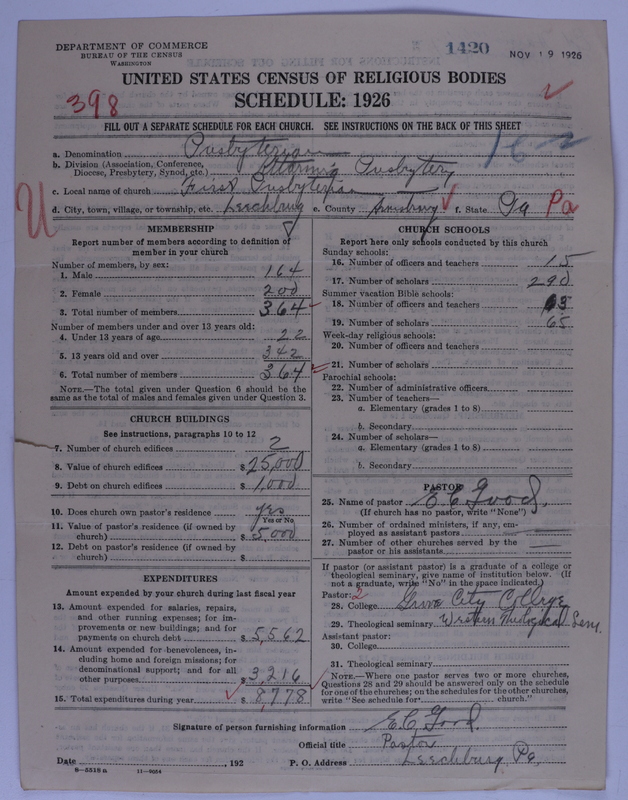 DEPARTMENT OF COMMERCE
BUREAU OF THE CENSUS
WASHINGTON
1420
NOV 19 1926
UNITED STATES CENSUS OF RELIGIOUS BODIES
SCHEDULE: 1926
398
FILL OUT A SEPARATE SCHEDULE FOR EACH CHURCH. SEE INSTRUCTIONS ON THE BACK OF THIS SHEET
a. Denomination Presbyterian
b. Division (Association, Conference, Diocese, Presbytery, Synod, etc.) Presbytery
c. Local name of church First Presbyterian
d. City, town, village, or township, etc. Leechburg e. County f. State Pa Pa
MEMBERSHIP
Report number of members according to definition of member in your church
Number of members, by sex:
1. Male 164
2. Female 200
3. Total number of members 364
Number of members under and over 13 years old:
4. Under 13 years of age 22
5. 13 years old and over 342
6. Total number of members 364
NOTE.—The total given under Question 6 should be the same as the total of males and females given under Question 3.
CHURCH BUILDINGS
See instructions, paragraphs 10 to 12
7. Number of church edifices 2
8. Value of church edifices $25,000
9. Debt on church edifices $1,000
10. Does church own pastor's residence yes
Yes or No
11. Value of pastor's residence (if owned by church) $5,000
12. Debt on pastor's residence (if owned by church) $
EXPENDITURES
Amount expended by your church during last fiscal year
13. Amount expended for salaries, repairs, and other running expenses; for improvements or new buildings; and for payments on church debt $5,562
14. Amount expended for benevolences, including home and foreign missions; for denominational support; and for all other purposes $3,216
15. Total expenditures during year $8,778
CHURCH SCHOOLS
Report here only schools conducted by this church
Sunday schools:
16. Number of officers and teachers 15
17. Number of scholars 290
Summer vacation Bible schools:
18. Number of officers and teachers
19. Number of scholars 65
Week-day religious schools:
20. Number of officers and teachers
21. Number of scholars
Parochial schools:
22. Number of administrative officers
23. Number of teachers—
a. Elementary (grades 1 to 8)
b. Secondary
24. Number of scholars—
a. Elementary (grades 1 to 8)
b. Secondary
PASTOR
25. Name of pastor E C Good.
(If church has no pastor, write "None")
26. Number of ordained ministers, if any, employed as assistant pastors
27. Number of other churches served by the pastor or his assistants
If pastor (or assistant pastor) is a graduate of a college or theological seminary, give name of institution below. (If not a graduate, write "No" in the space indicated.)
Pastor: 2
28. College Grove City College
29. Theological seminary Western Theological Sem.
Assistant pastor:
30. College
31. Theological seminary
NOTE.—Where one pastor serves two or more churches, Questions 28 and 29 should be answered only on the schedule for one of the churches; on the schedules for the other churches, write "See schedule for church."
Signature of person furnishing information E.C. Good.
Official title Pastor
Date , 192 P. O. Address Leechburg Pa.
8—5518 a 11—9054